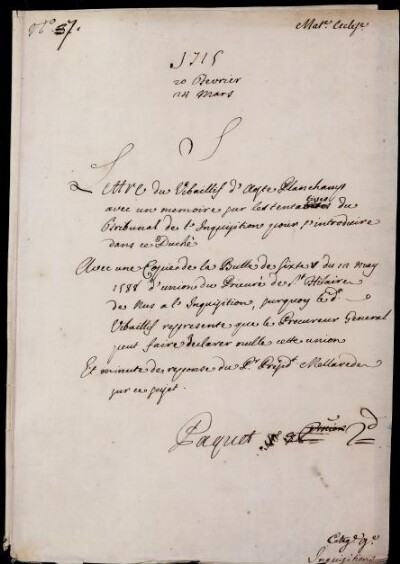 N.° 57.
Mat.e Eccles.e
1715
20 Fevrier
24 Mars
Lettre du Vibaillif d'Aoste Planchamp
avec un memoire sur les tentatives du
Tribunal de l'Inquisition pour s'introduire
dans ce Duché
Avec une Copie de la Bulle de Sixte V du 12 may
1588 d'union du Prieuré de S.t Hilaire
de Nus a l'Inquisition, surquoy le d.
Vibaillif represente que le Procureur General
peut faire declarer nulle cette union
Et minute de reponse du P.r Présid.t Mellarede
sur ce sujet.
Paquet 2d
Inquisition